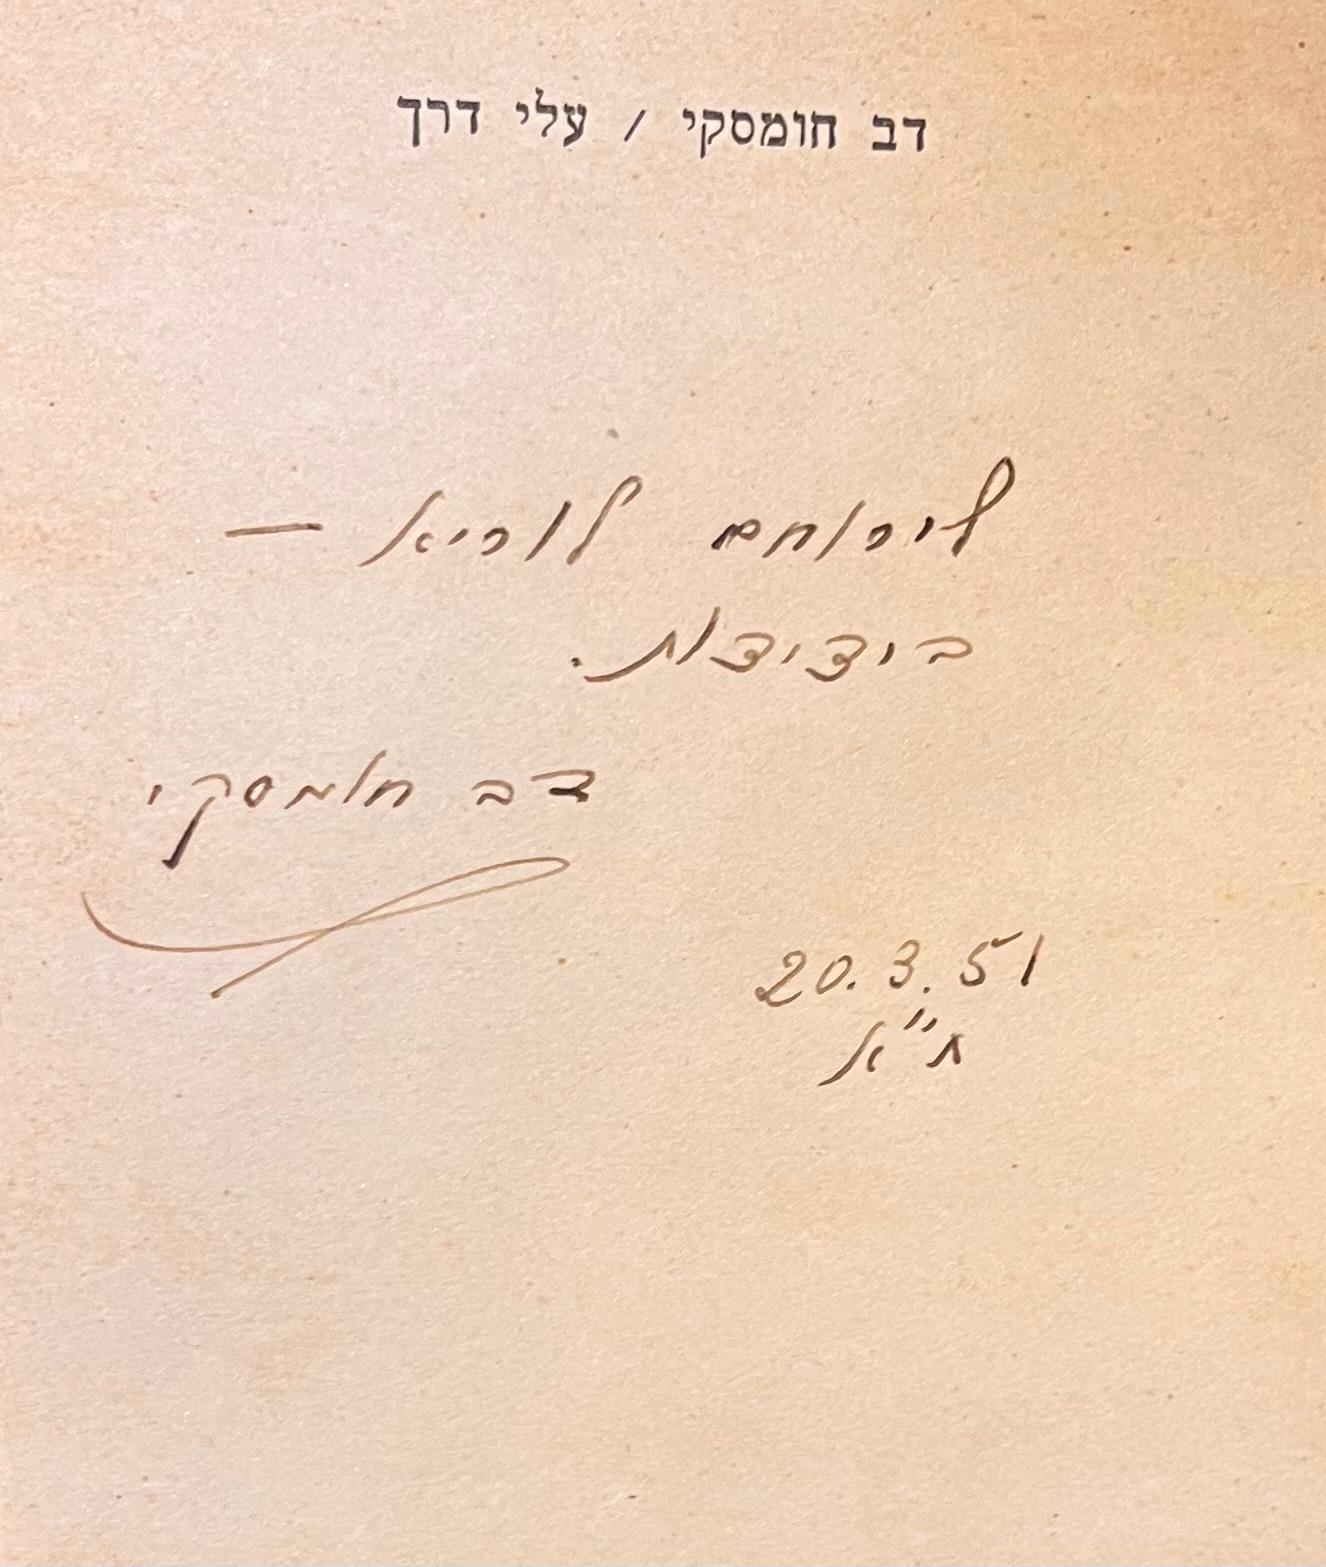 דב חומסקי / עלי דרך
לירוחם לוריא —
בידידות.
דב חומסקי
20.3.51
ת"א